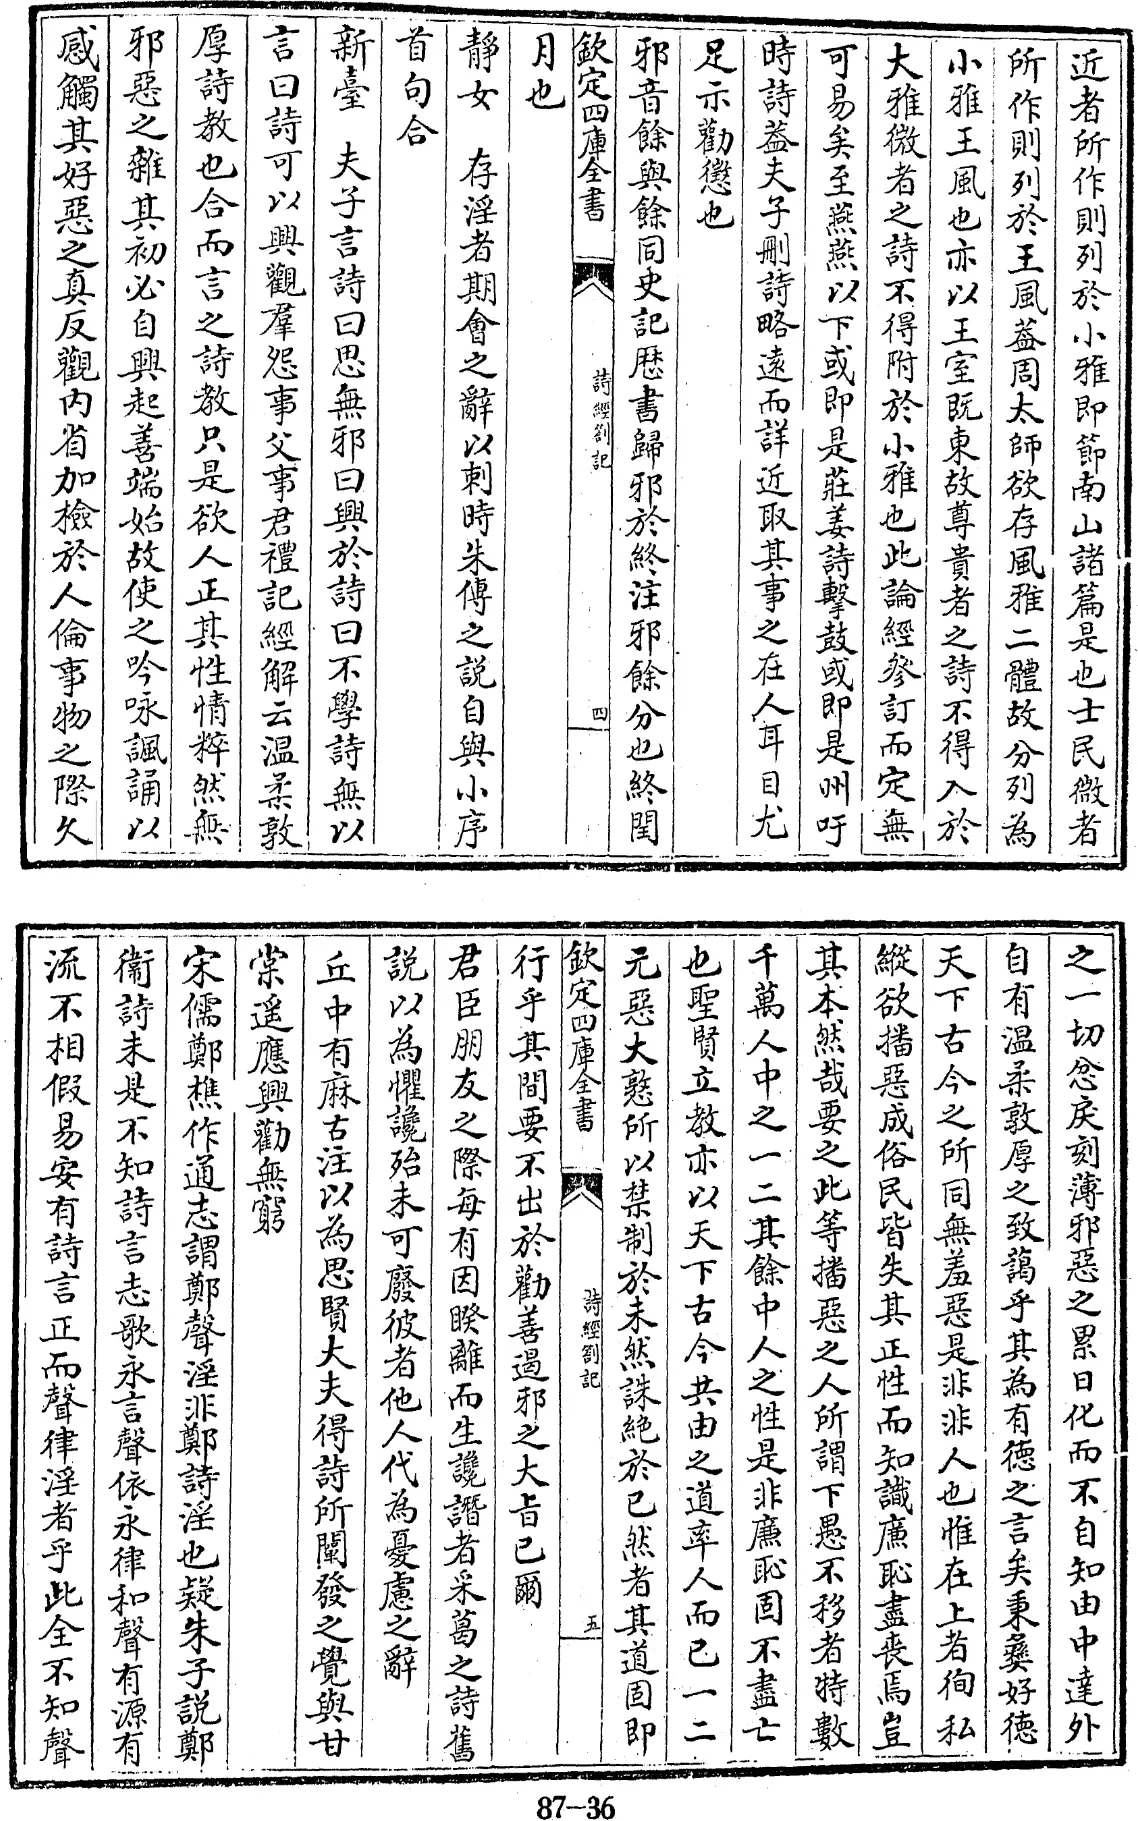 近者所作則列於小雅即節南山諸篇是也士民微者
所作則列於王風葢周太師欲存風雅二體故分列為
小雅王風也亦以王室既東故尊貴者之詩不得入於
大雅微者之詩不得附於小雅也此論經參訂而定無
可易矣至燕燕以下或即是莊姜詩擊鼓或即是州吁
時詩葢夫子刪詩略遠而詳近取其事之在人耳目尤
足示勸懲也
邪音餘與餘同史記歴書歸邪於終注邪餘分也終閏
欽定四庫全書
詩經劄記
四
月也
靜女 存淫者期會之辭以刺時朱傳之説自與小序
首句合
新臺 夫子言詩曰思無邪曰興於詩曰不學詩無以
言曰詩可以興觀羣怨事父事君禮記經解云溫柔敦
厚詩教也合而言之詩教只是欲人正其性情粹然無
邪惡之雜其初必自興起善端始故使之吟咏諷誦以
感觸其好惡之真反觀内省加檢於人倫事物之際久
之一切忿戾刻薄邪惡之累日化而不自知由中達外
自有溫柔敦厚之致藹乎其為有德之言矣秉彝好德
天下古今之所同無羞惡是非非人也惟在上者徇私
縱欲播惡成俗民皆失其正性而知識亷恥盡喪焉豈
其本然哉要之此等播惡之人所謂下愚不移者特數
千萬人中之一二其餘中人之性是非亷恥固不盡亡
也聖賢立教亦以天下古今共由之道率人而已一二
元惡大憝所以禁制於未然誅絶於已然者其道固即
欽定四庫全書
詩經劄記
五
行乎其間要不出於勸善遏邪之大旨已爾
君臣朋友之際每有因暌離而生讒譖者采葛之詩舊
説以為懼讒殆未可廢彼者他人代為憂慮之辭
丘中有麻古注以為思賢大夫得詩所闡發之覺與甘
棠遥應興勸無窮
宋儒鄭樵作通志謂鄭聲淫非鄭詩淫也疑朱子説鄭
衞詩未是不知詩言志歌永言聲依永律和聲有源有
流不相假易安有詩言正而聲律淫者乎此全不知聲
87-36